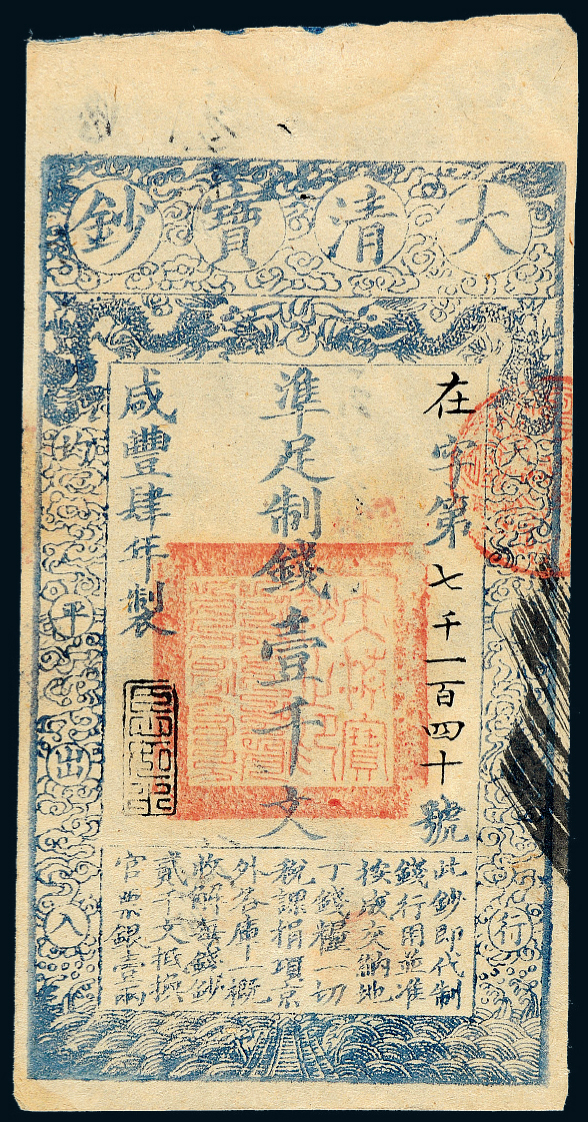 大清寶鈔
在字第七千一百四十號
準足制錢壹千文
咸豐肆年製
天
行
均
平
出
入
此鈔即代制
錢行用並准
按成交納地
丁錢糧一切
稅課捐項京
外各庫一概
收解每錢鈔
貳千文抵換
官票銀壹兩